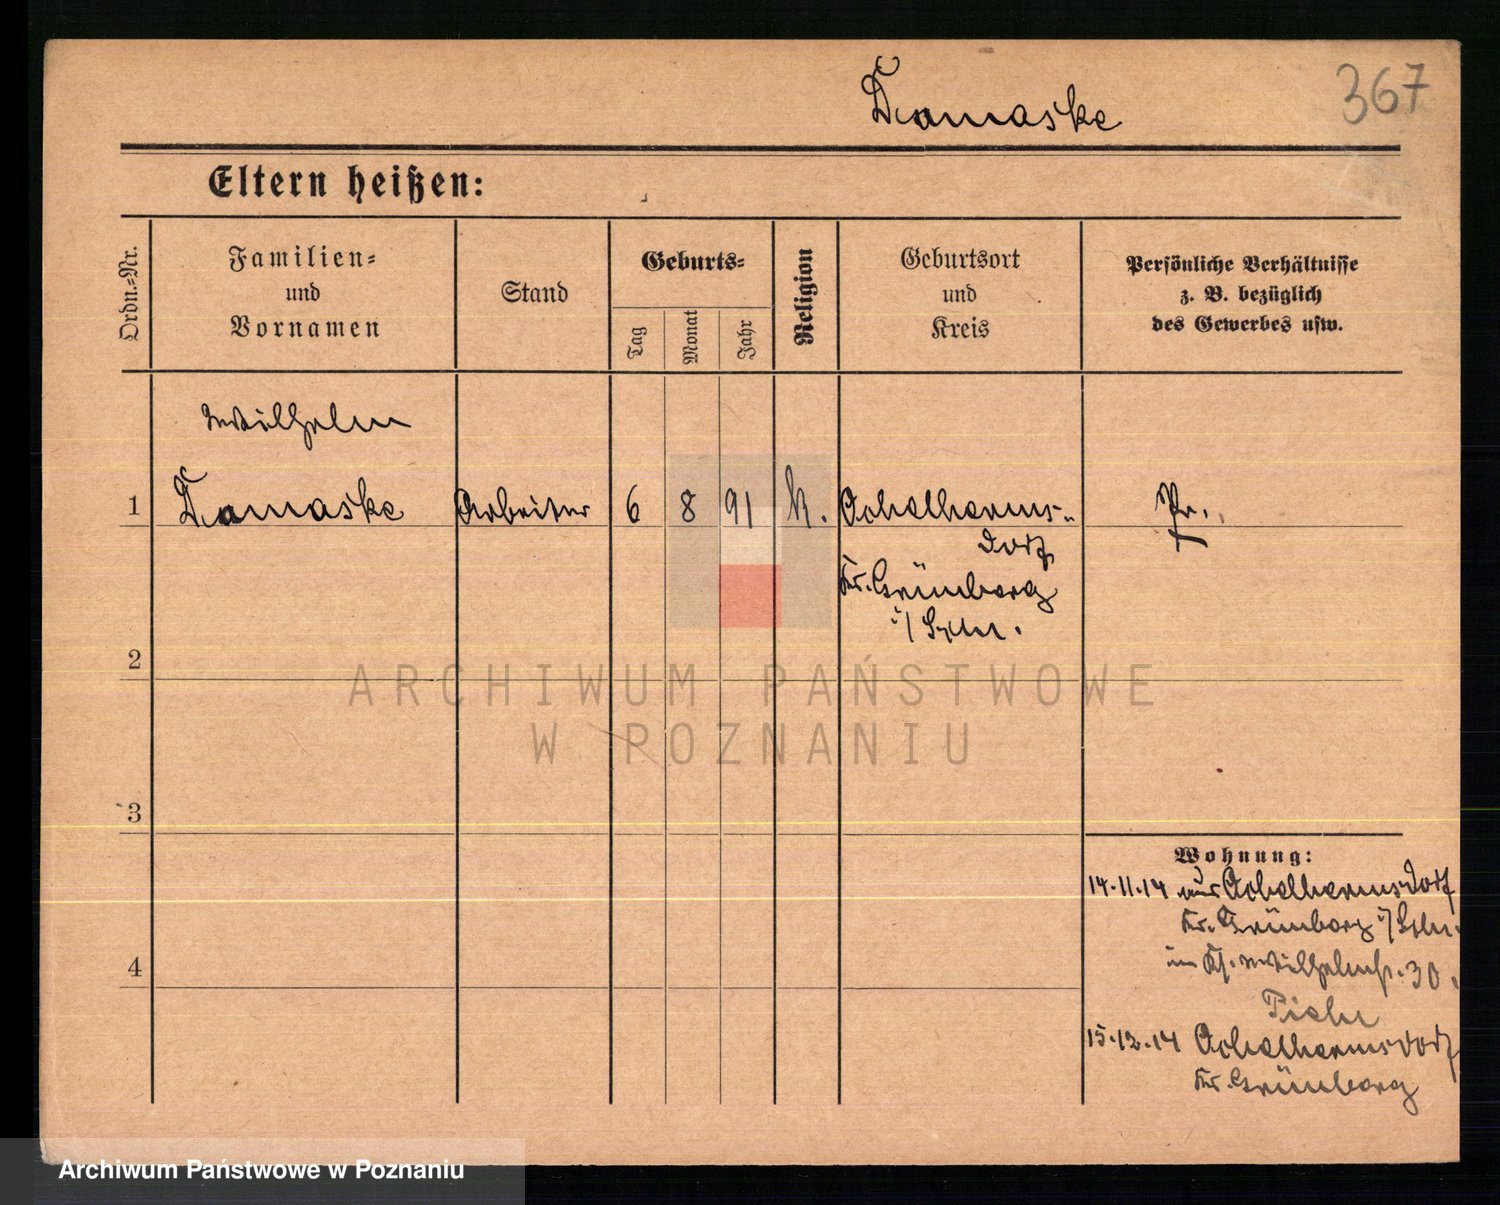 Damaske
367
Eltern heißen:
Ordn.-Nr.
Familien-
und
Vornamen
Stand
Geburts-
Tag
Monat
Jahr
Religion
Geburtsort
und
Kreis
Persönliche Verhältnisse
z. B. bezüglich
des Gewerbes usw.
Wilhelm
1 Damaske Arbeiter 6 8 91 k. Ochelherms-
dorf
Kr. Grünberg
i/Schl.
Pr.
2
ARCHIWUM PAŃSTWOWE
W POZNANIU
3
Wohnung:
14.11.14 aus Ochelhermsdorf
Kr. Grünberg i/Schl.
Wilhelmstr. 30.
4
15.12.14 Ochelhermsdorf
Kr. Grünberg
Archiwum Państwowe w Poznaniu